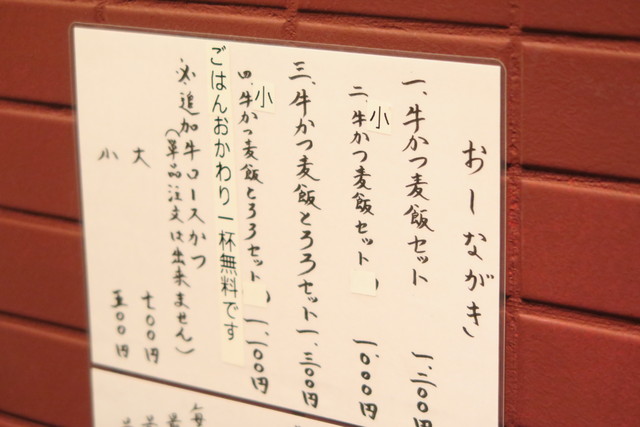 おしながき
一、牛かつ麦飯セット 一、二〇〇円
二、牛かつ麦飯セット 小 一、〇〇〇円
三、牛かつ麦飯とろろセット 一、三〇〇円
四、牛かつ麦飯とろろセット 小 一、一〇〇円
ごはんおかわり一杯無料です
※追加牛ロースかつ
(単品注文は出来ません)
大 七〇〇円
小 五〇〇円